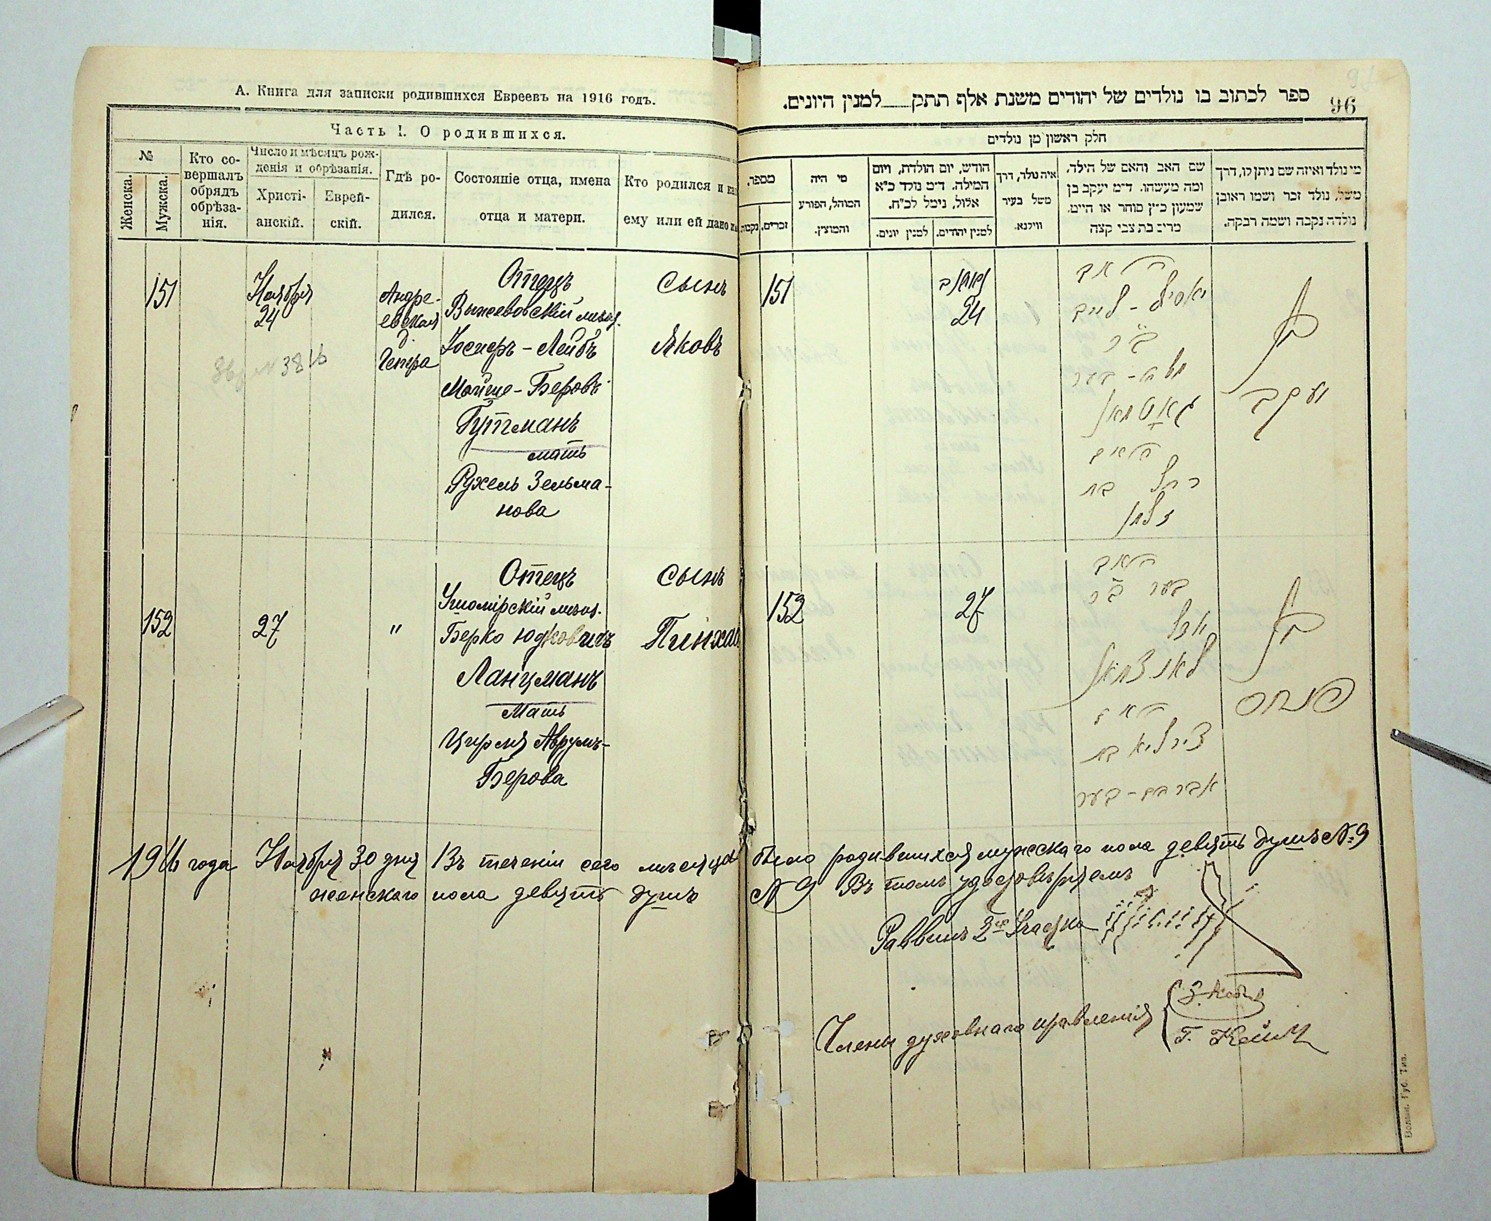 А. Книга для записки родившихся Евреевъ на 1916 годъ.
Часть I. О родившихся.
№
Женска.
Мужска.
Кто со-
вершалъ
обрядъ
обрѣза-
нія.
Число и мѣсяцъ рож-
денія и обрѣзанія.
Христі-
анскій.
Еврей-
скій.
Гдѣ ро-
дился.
Состояніе отца, имена
отца и матери.
Кто родился и
ему или ей дано
151
Ноября
24
Андре-
евская
Отецъ
Іосифъ-Лейбъ
Мойше-Беровъ
Гутманъ
мать
Рухель Зельма-
нова
сынъ
Яковъ
152
27
"
Отецъ
Ушомірскій мѣщ.
Берко Юдковичъ
Ланцманъ
Мать
Цирля Аврумъ-
Берова
сынъ
Пинхас
ספר לכתוב בו נולדים של יהודים משנת אלף תתק למנין היונים.
96
חלק ראשון מן נולדים
מספר.
זכרים.
נקבות
מי היה
המוהל, הפורע
והמוצץ.
חודש, יום הולדת, ויום
המילה. ד״מ נולד כ״א
אלול, נימל לכ״ח.
למנין יונים.
למנין יהודים.
איה נולד, דרך
משל בעיר
ווילנא.
שם האב והאם של הילד,
ומה מעשהו. ד״מ יעקב בן
שמעון כ״ץ סוחר או חייט.
מרים בת צבי קצה
מי נולד ואיזה שם ניתן לו, דרך
משל, נולד זכר ושמו ראובן
נולדה נקבה ושמה רבקה.
151
24
האב
יאסיל-לייב
ב״ר
משה-בער
גוטמאן
האם
רחל בת
זלמן
בן
יעקב
152
27
האב
בער ב״ר
יודל
לאנצמאן
האם
צירליא בת
אברהם-בער
בן
פנחס
1916 года Ноября 30 дня Въ теченіи сего мѣсяца было родившихся мужскаго пола девять душъ № 9
женскаго пола девять душъ № 9 Въ томъ удостовѣряемъ
Раввинъ 2го Участка
Члены духовнаго правленія
Волын. Губ. Тип.